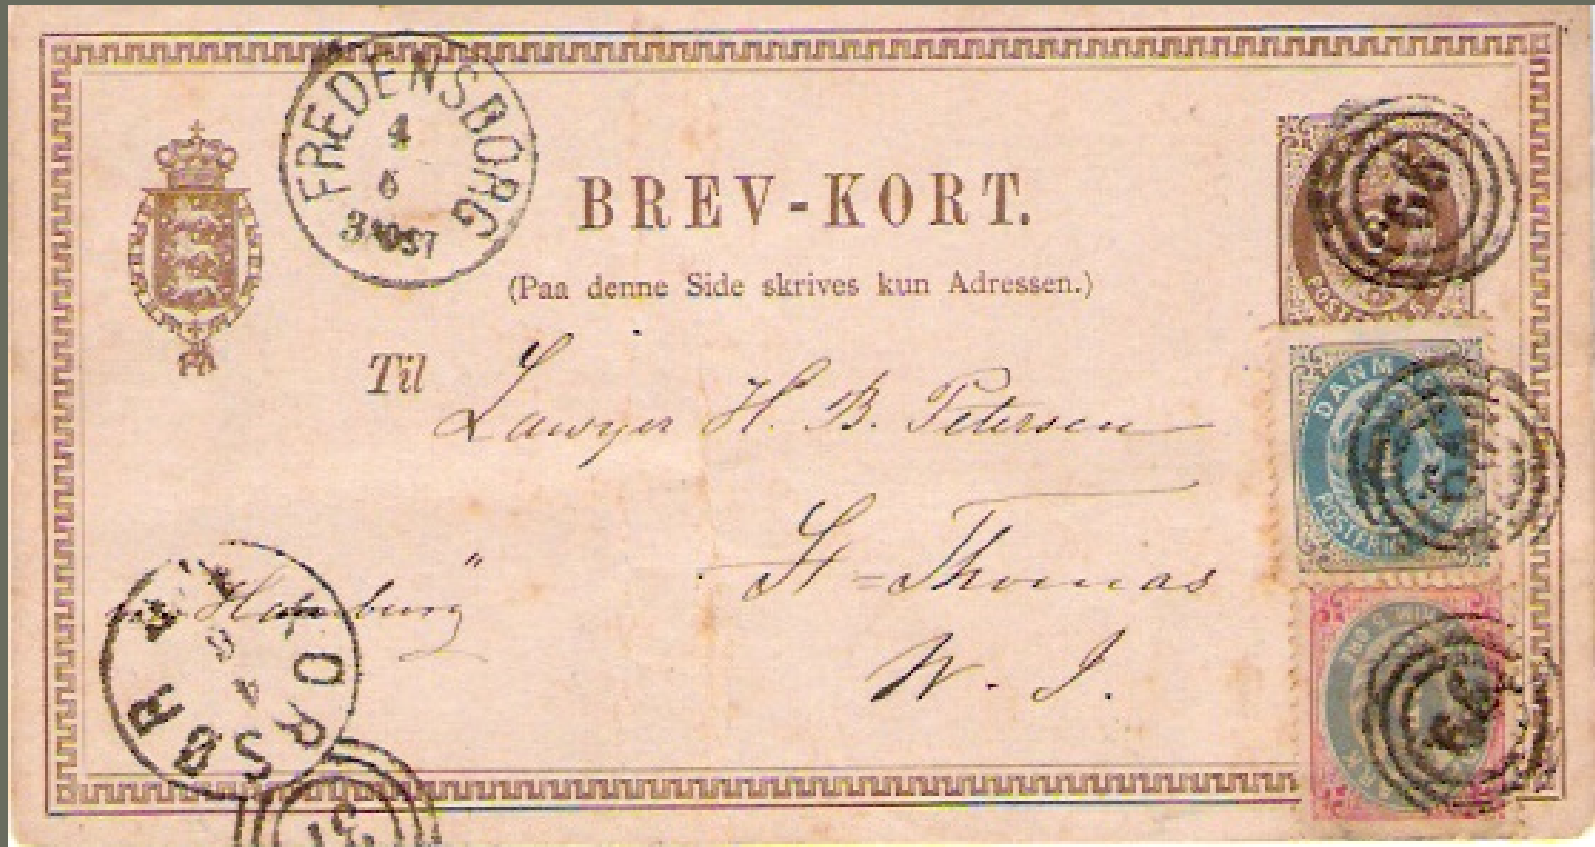 FREDENSBORG
4
6
3 POST
BREV-KORT.
(Paa denne Side skrives kun Adressen.)
Til
Lawyer H. B. Petersen
St=Thomas
W. I.
Hamburg"
KORSØR
6
4
31
DANM
POSTFRIM